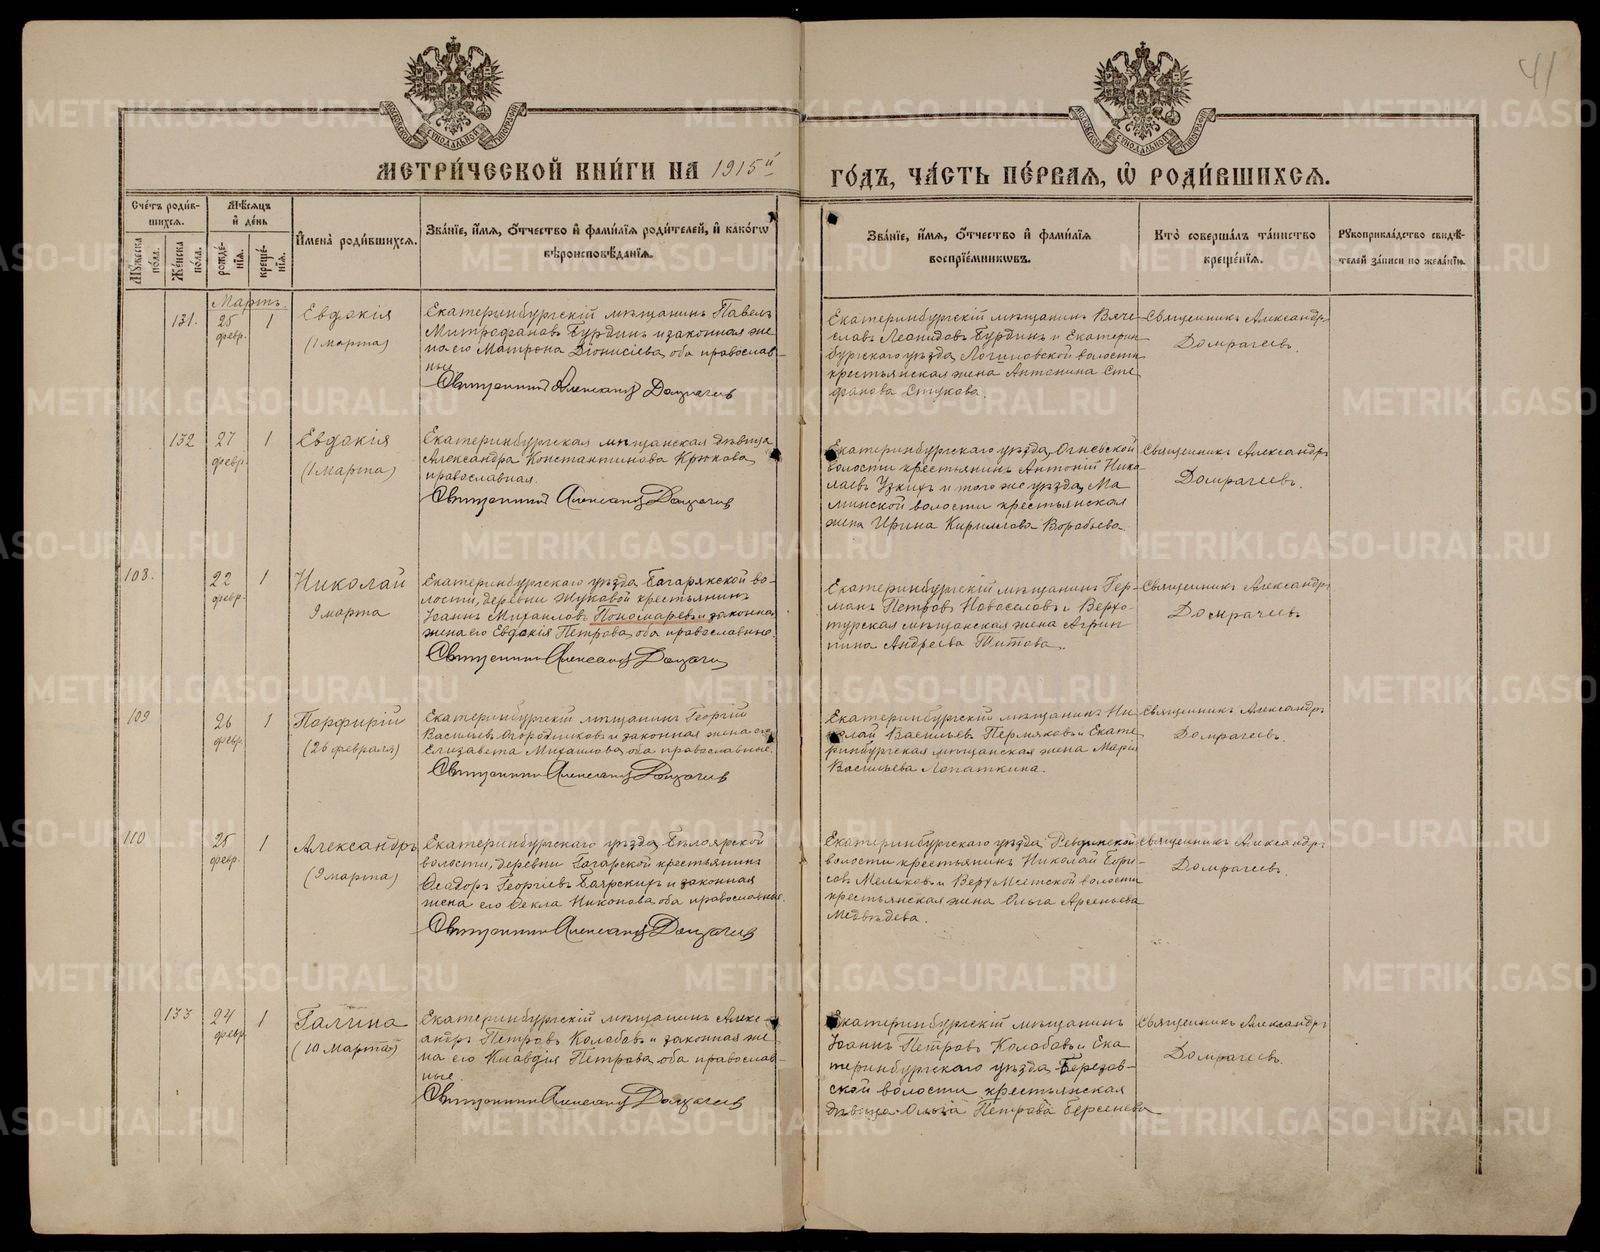 41
МЕТРИ́ЧЕСКОЙ КНИ́ГИ НА 1915й
ГО́ДЪ, ЧА́СТЬ ПЕ́РВАЯ, Ѡ РОДИ́ВШИХСЯ.
Сче́тъ роди́в-
шихся.
Мужеска по́ла.
Же́нска по́ла.
Мѣ́сяцъ
и҆ де́нь
рожде́нїя.
креще́нїя.
И҆мена̀ роди́вшихся.
Зва́нїе, и҆́мя, ѻ҆́тчество и҆ фами́лїя роди́телей, и҆ како́гѡ
вѣроисповѣ́данїя.
Зва́нїе, и҆́мя, ѻ҆́тчество и҆ фами́лїя
воспрїе́мниковъ.
Кто̀ соверша́лъ та́инство
креще́нїя.
Рукоприкла́дство свидѣ́-
телей за́писи по жела́нїю.
Мартъ
131. 25 февр. 1
Евдокія
(1 марта)
Екатеринбургскій мѣщанинъ Павелъ
Митрофановъ Бурдинъ и законная же-
на его Матрона Діонисіева, оба православ-
ные
Священникъ Александръ Домрачевъ
Екатеринбургскій мѣщанинъ Вяче-
славъ Леонидовъ Бурдинъ и Екатерин-
бургскаго уѣзда, Логиновской волости
крестьянская жена Антонина Сте-
фанова Стукова.
Священникъ Александръ
Домрачевъ.
132 27 февр. 1
Евдокія
(1 марта)
Екатеринбургская мѣщанская дѣвица
Александра Константинова Крюкова,
православная.
Священникъ Александръ Домрачевъ
Екатеринбургскаго уѣзда, Огневской
волости крестьянинъ Антоній Нико-
лаевъ Узкихъ и того же уѣзда, Ма-
минской волости крестьянская
жена Ирина Кириллова Воробьева.
Священникъ Александръ
Домрачевъ.
108. 22 февр. 1
Николай
9 марта
Екатеринбургскаго уѣзда Багарякской во-
лости, деревни Жуковой крестьянинъ
Іоаннъ Михаиловъ Пономаревъ и законная
жена его Евдокія Петрова, оба православные.
Священникъ Александръ Домрачевъ
Екатеринбургскій мѣщанинъ Гер-
манъ Петровъ Новоселовъ и Верхо-
турская мѣщанская жена Агрип-
пина Андреева Титова.
Священникъ Александръ
Домрачевъ
109 26 февр. 1
Порфирій
(26 февраля)
Екатеринбургскій мѣщанинъ Георгій
Васильевъ Огородниковъ и законная жена его
Елизавета Михаилова, оба православные.
Священникъ Александръ Домрачевъ
Екатеринбургскій мѣщанинъ Ни-
колай Васильевъ Пермяковъ и Екате-
ринбургская мѣщанская жена Марія
Васильева Лопаткина.
Священникъ Александръ
Домрачевъ.
110 25 февр. 1
Александръ
(9 марта)
Екатеринбургскаго уѣзда, Бѣлоярской
волости, деревни Гагарской крестьянинъ
Ѳеодоръ Георгіевъ Боярскихъ и законная
жена его Ѳекла Никонова, оба православные.
Священникъ Александръ Домрачевъ
Екатеринбургскаго уѣзда Ревдинской
волости крестьянинъ Николай Бори-
совъ Мельковъ и Верх-Исетской волости
крестьянская жена Ольга Арсеньева
Медвѣдева.
Священникъ Александръ
Домрачевъ.
133 24 февр 1
Галина
(10 марта)
Екатеринбургскій мѣщанинъ Алекс-
андръ Петровъ Колобовъ и законная же-
на его Клавдія Петрова, оба православ-
ные.
Священникъ Александръ Домрачевъ
Екатеринбургскій мѣщанинъ
Іоаннъ Петровъ Колобовъ и Ека-
теринбургскаго уѣзда Березов-
ской волости крестьянская
дѣвица Ольга Петрова Берсенева
Священникъ Александръ
Домрачевъ.
METRIKI.GASO-URAL.RU